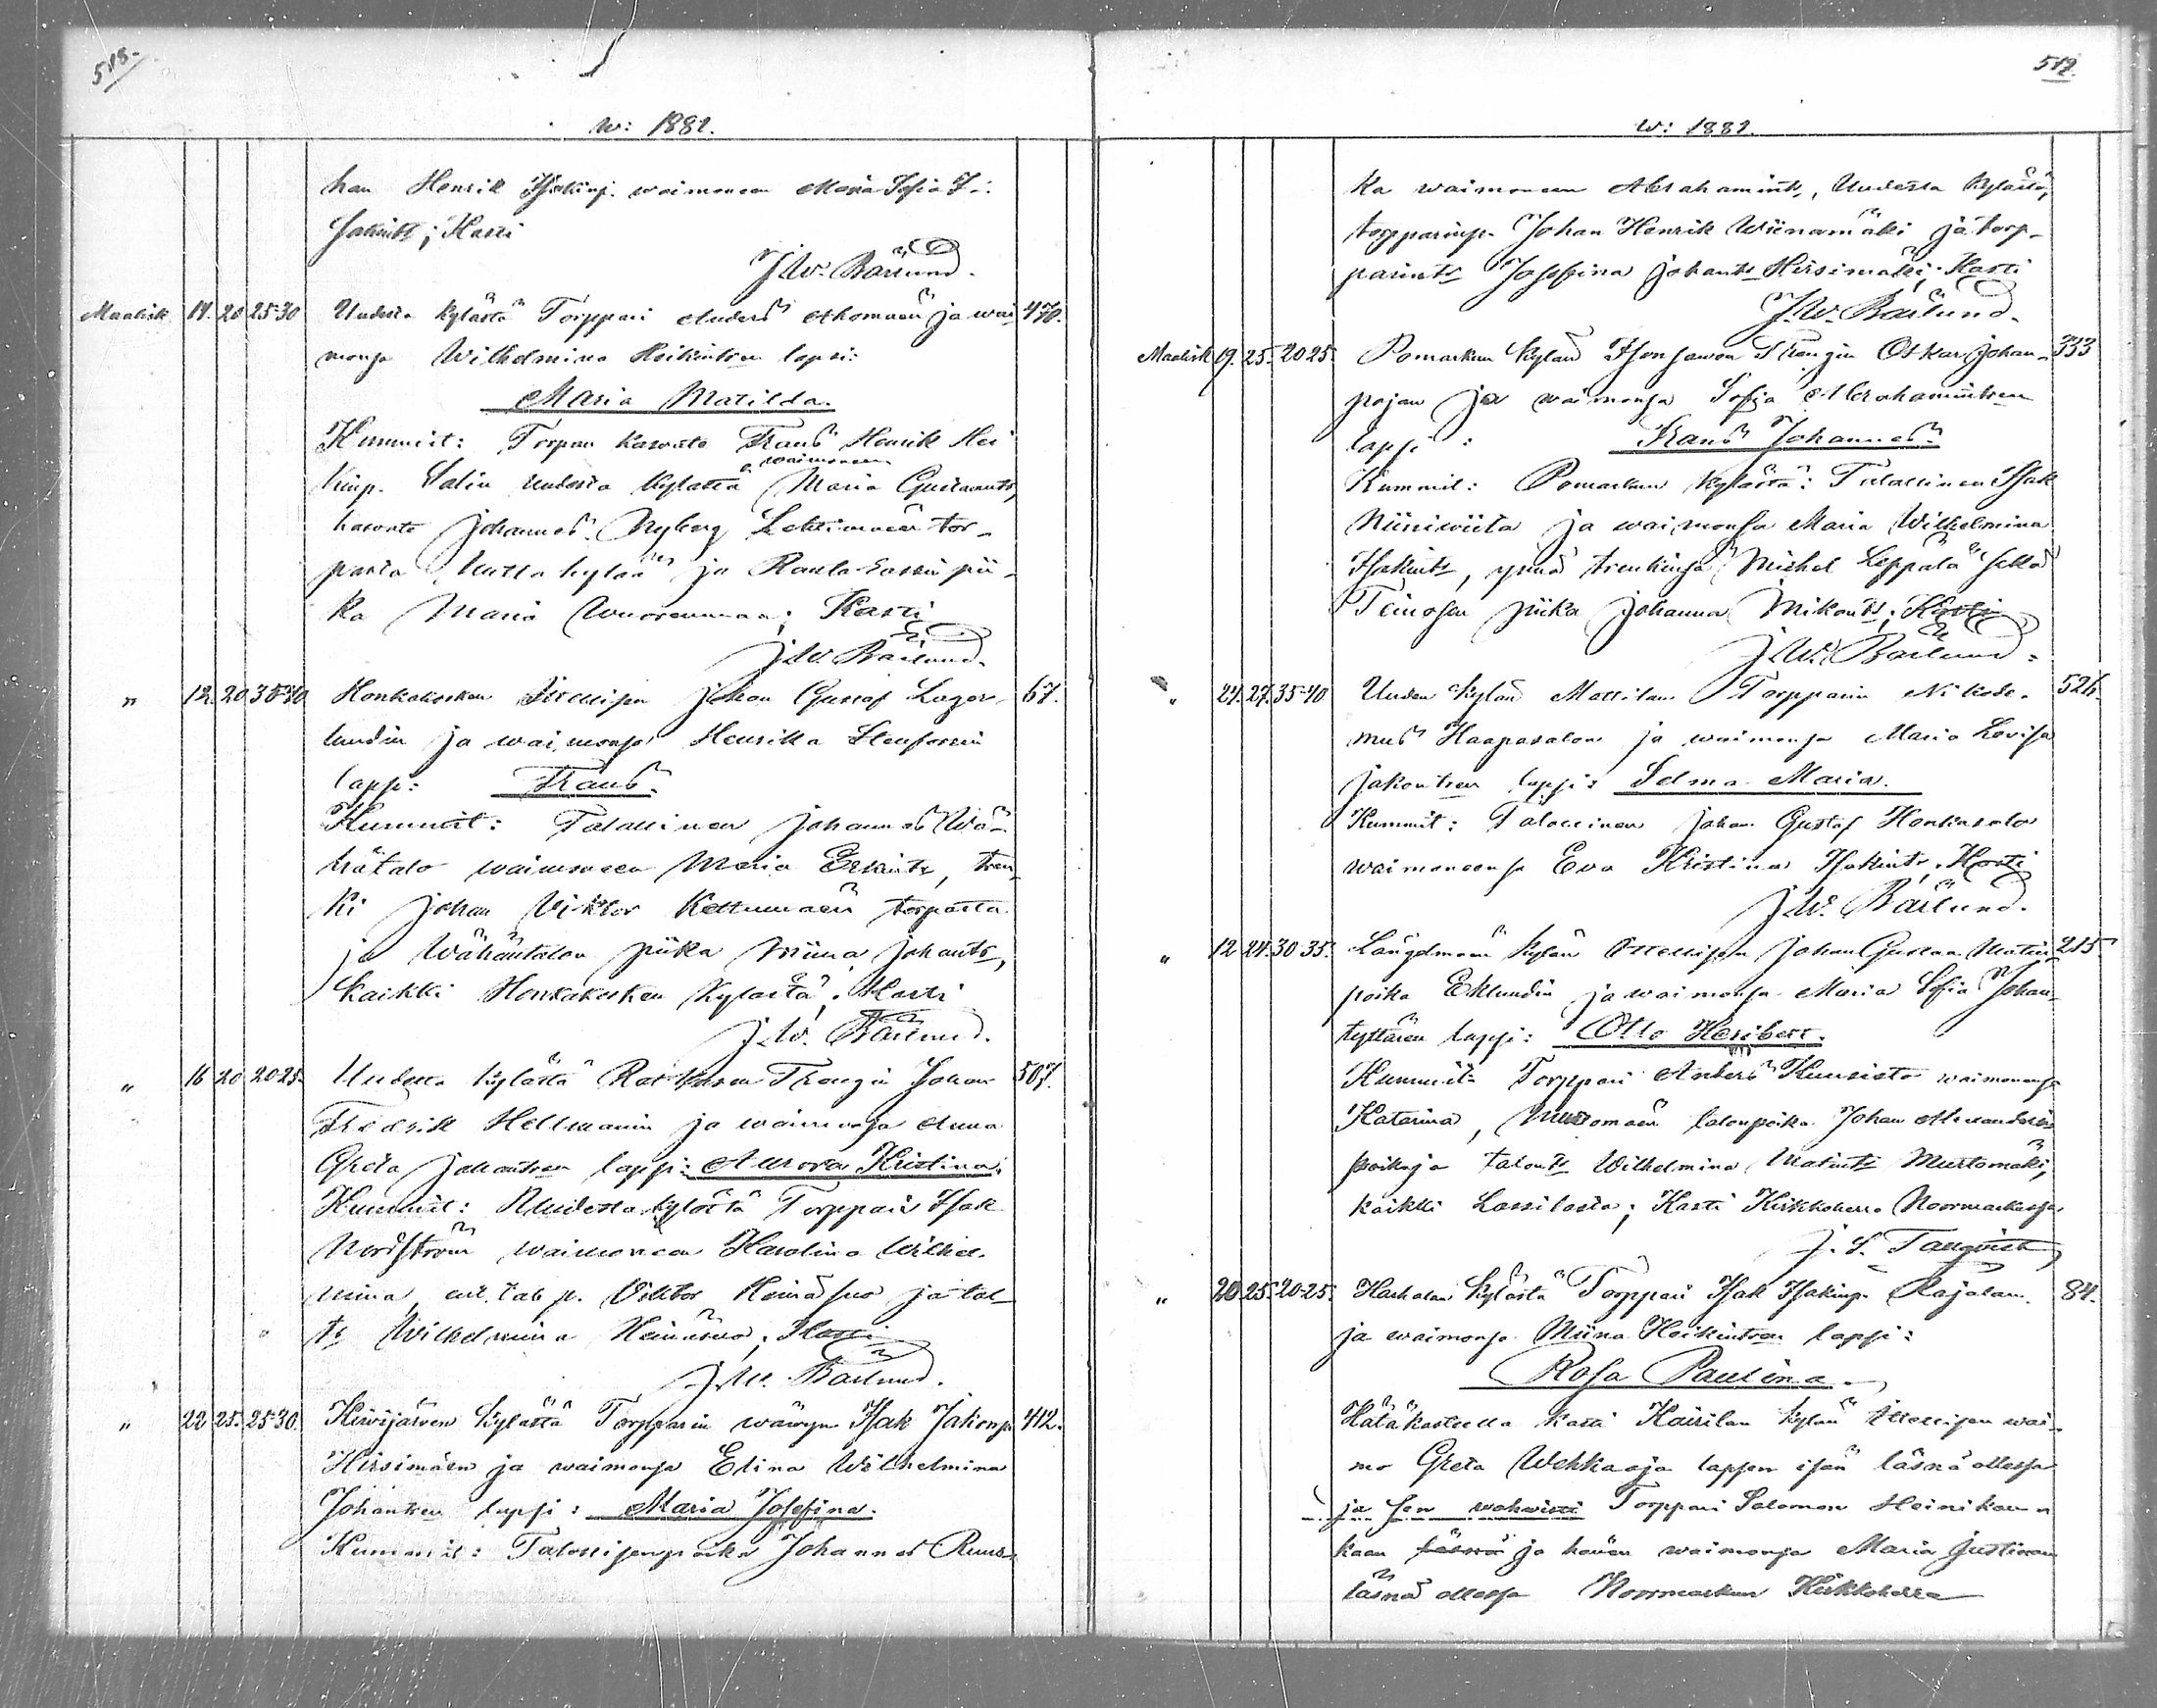 518.
w: 1882.
han Henrik Isakinp. waimoneen Maria Sofia I-
sakint; Kasti
J.W. Bärlund.
Maalisk 14. 20 25-30 Uudesta kylästä Torppari Anders Ahomaan ja wai- 470.
monsa Wilhelmina Heikintren lapsi:
Maria Matilda.
Kummit: Torpan kaswate Frans Henrik Hei
kinp. Salin Uudesta kylästä waimoneen Maria Gustawint,
kaswate Johannes Nyberg Lehtimäen tor-
pasta Uutta kylää ja pii-
ka Maria Wuorenmaa; Kasti
J.W. Bärlund.
" 12. 20 35-40 Honkakosken Itsellisen Johan Gustaf Lager- 67.
lundin ja waimonsa Henrika Stenforssin
lapsi: Frans.
Kummit: Talallinen Johannes Wä-
hätalo waimoneen Maria Erkints, tren-
ki Johan Viktor Kettumäen torpasta
ja Wähäntalon piika Miina Johants,
kaikki Honkakosken kylästä; Kasti
J.W. Bärlund.
" 16 20 20-25. Uudesta kylästä Trengin Johan 507.
Fredrik Hellmanin ja waimonsa Anna
Greta Johantren lapsi: Aurora Kristina.
Kummit: Uudesta kylästä Torppari Isak
Nordström waimoneen Karolina Wilhel-
mina, ent. tal. p. Viktor Heinäsuo ja tal-
ts Wilhelmina Heinäsuo; Kasti
J.W. Bärlund.
" 22 25. 25-30. Kiwijärwen kylästä Torpparin wäwyn Isak Jakonp. 412.
Hirsimäen ja waimonsa Elina Wilhelmina
Johantren lapsi: Maria Josefina.
Kummit: Talollisenpoika Johannes Ruus-
519.
w: 1882.
ka waimoneen Abrahamints, Uudesta kylästä,
torpparinp. Johan Henrik Wiinamäki ja torp-
parints Josefina Johants Hirsimäki; Kasti
J.W. Bärlund.
Maalisk 19. 25. 20 25. Pomarkun kylän Trengin Oskar Johan- 333
pojan ja waimonsa Sofia Abrahamintren
lapsi: Frans Johannes.
Kummit: Pomarkun kylästä: Talallinen Isak
Niiniwiita ja waimonsa Maria Wilhelmina
Isakints, ynnä trenkinsä Michel Leppälä sekä
piika Johanna Mikonts; Kasti
J.W. Bärlund.
" 24. 27. 35-40 Uuden kylän Mattilan Torpparin Nikode- 526.
mus Haapasalon ja waimonsa Maria Lovisa
Jakontren lapsi: Selma Maria.
Kummit: Talollinen Johan Gustaf Honkasalo
waimoneensa Eva Kristina Isakints; Kasti
J.W. Bärlund.
" 12 24. 30 35. Längdmaan kylän Itsellisen Johan Gustaa Matin- 215
poika Eklundin ja waimonsa Maria Sofia Johan-
tyttären lapsi: Otto Heribert.
Kummit: Torppari Anders Kuusisto waimonensa
Katarina, Mustomäen talonpoika Johan
poika ja talonts Wilhelmina Matints Mustomäki,
kaikki Lassilasta; Kasti Kirkkoherra Noormarkussa
J. S. Tallqvist
" 20 25. 20-25. Harhalan kylästä Torppari Isak Isakinp. Rajalan 84.
ja waimonsa Miina Heikintren lapsi:
Rosa Paulina.
Hätäkasteella kasti Kairilan kylän Itsellisen wai-
mo Greta Wehkaoja lapsen isän läsnä ollessa
ja sen wahwisti Torppari Salomon Heinikan
kaan läsnä ja hänen waimonsa Maria Justiinan
läsnä ollessa Noormarkun Kirkkoherra